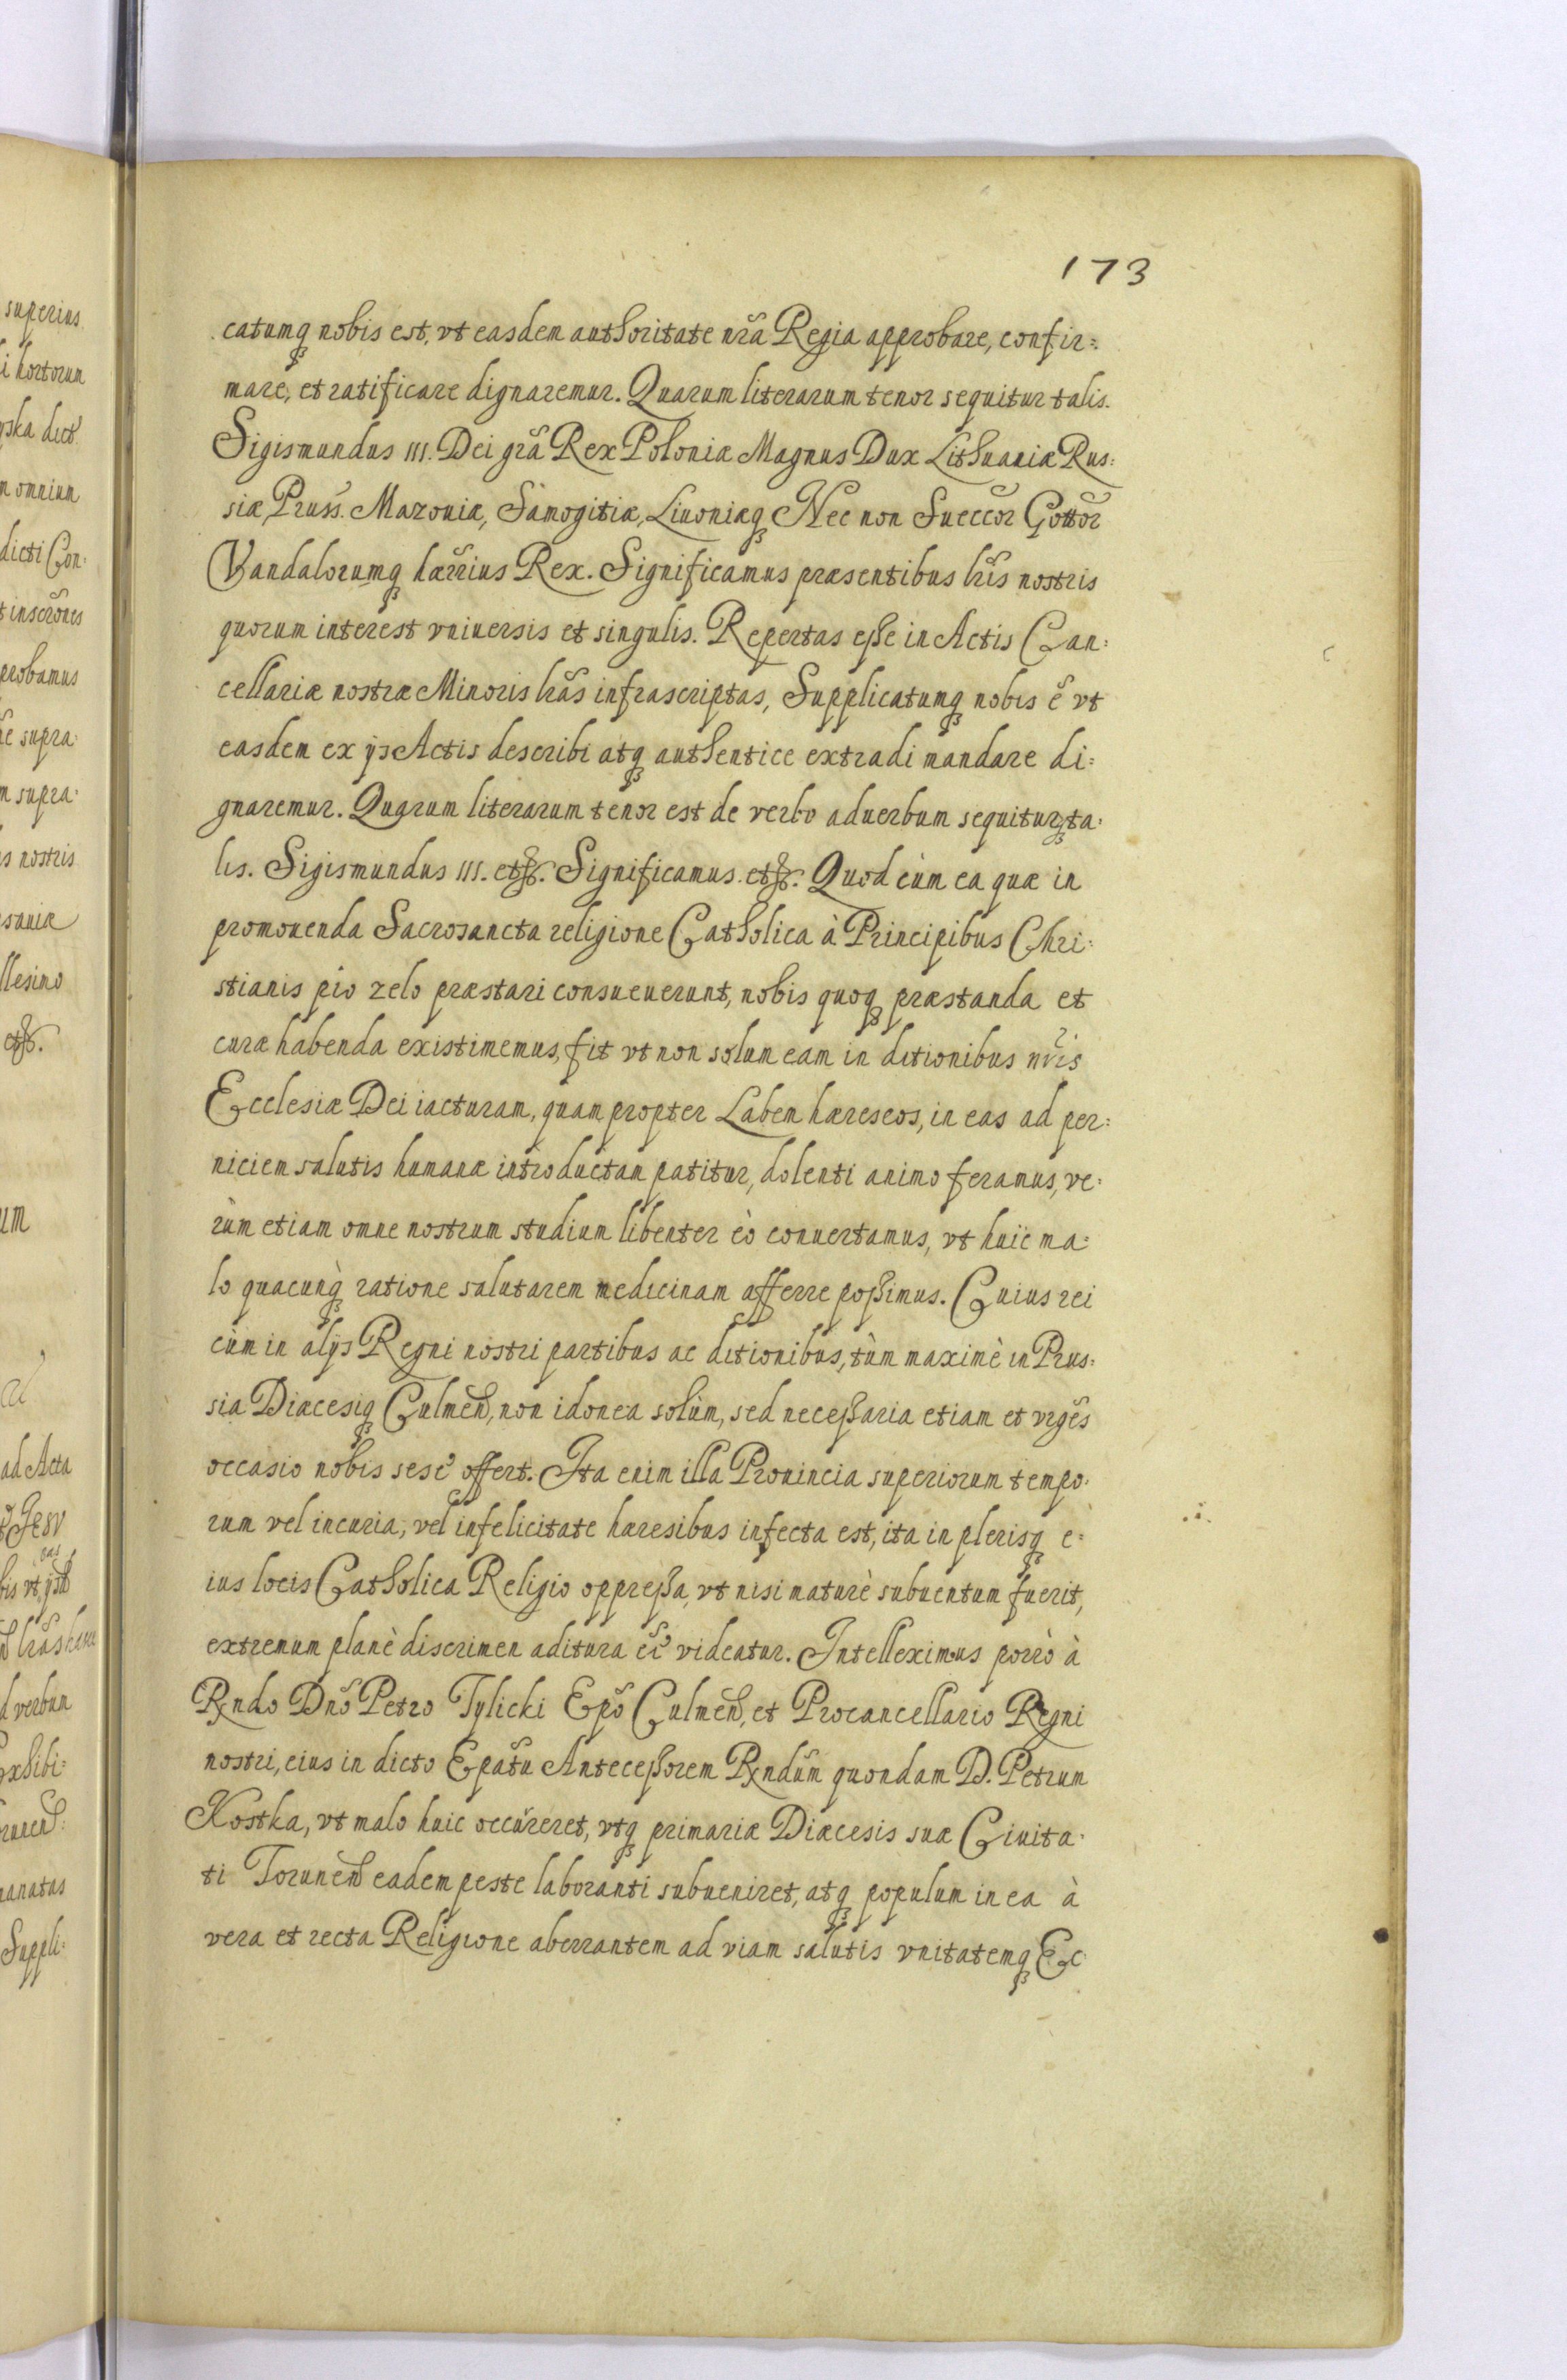 173
catumq nobis est, vt easdem authoritate nrã Regia approbare, confir=
mare, et ratificare dignaremur. Quarum literarum tenor sequitur talis.
Sigismundus III. Dei grã Rex Poloniæ Magnus Dux Lithuaniæ Rus=
siæ, Pruss. Mazouiæ, Samogitiæ, Liuoniæq Nec non Sueccor Gottor
Vandalorumq hærrius Rex. Significamus præsentibus lris nostris
quorum interest vniuersis et singulis. Repertas esse in Actis Can=
cellariæ nostræ Minoris lras infrascriptas, Supplicatumq nobis ẽ vt
easdem ex ijs Actis describi atq authentice extradi mandare di=
gnaremur. Quarum literarum tenor est de verbo aduerbum sequiturq ta=
lis. Sigismundus III. etc. Significamus etc. Quod cùm ea quæ in
promouenda Sacrosancta religione Catholica à Principibus Chri=
stianis pio zelo præstari consueuerunt, nobis quoq præstanda et
curæ habenda existimemus, fit vt non solum eam in ditionibus nris
Ecclesiæ Dei iacturam, quam propter Labem hæreseos, in eas ad per=
niciem salutis humanæ introductam patitur, dolenti animo feramus, ve=
rùm etiam omne nostrum studium libenter eò conuertamus, vt huic ma=
lo quacunq ratione salutarem medicinam afferre possimus. Cuius rei
cùm in alijs Regni nostri partibus ac ditionibus, tùm maximè in Prus=
sia Diæcesiq Culmeñ, non idonea solùm, sed necessaria etiam et vrgẽs
occasio nobis sesè offert. Ita enim illa Prouincia superiorum tempo=
rum vel incuria, vel infelicitate hæresibus infecta est, ita in plerisq e=
ius locis Catholica Religio oppressa, vt nisi maturè subuentum fuerit,
extremum planè discrimen aditura eẽ videatur. Intelleximus porrò à
Rndo Dño Petro Tylicki Epõ Culmeñ, et Procancellario Regni
nostri, eius in dicto Epãtu Antecessorem Rndũm quondam D. Petrum
Kostka, vt malo huic occũreret, vtq primariæ Diæcesis suæ Ciuita=
ti Toruneñ eadem peste laboranti subueniret, atq populum in ea à
vera et recta Religione aberrantem ad viam salutis vnitatemq Ec
superius
i hortorum
ska dict
omnium
dicti Con=
inscrões
probamus
supra=
supra=
s nostris
llesimo
etc.
um
ad Acta
Jesu
d verbum
Exhibi=
Suppli=